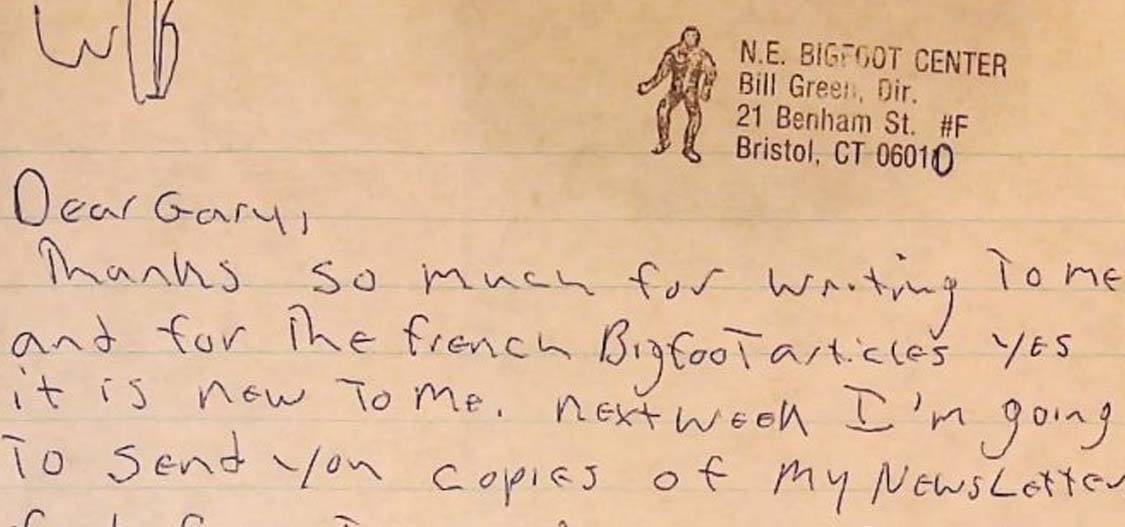 N.E. BIGFOOT CENTER
Bill Green, Dir.
21 Benham St. #F
Bristol, CT 06010
Dear Gary,
Thanks so much for writing To me
and for The french Bigfoot articles yes
it is new To me. next week I'm going
To send you copies of my Newsletter